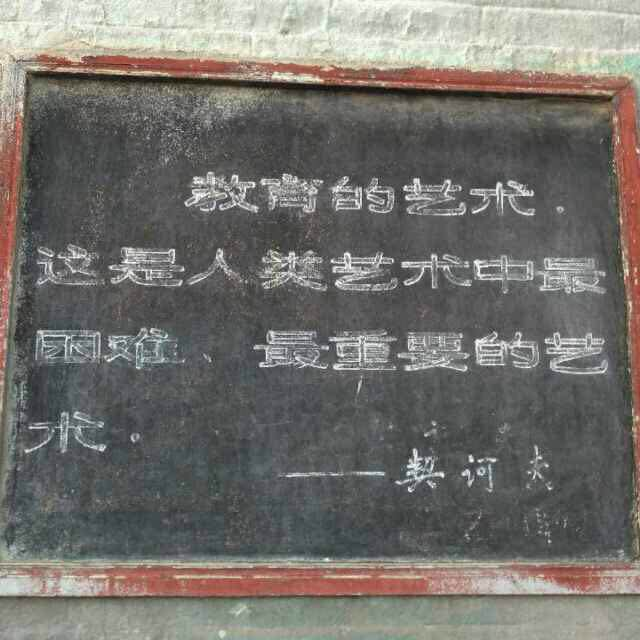 教育的艺术.
这是人类艺术中最
困难、最重要的艺
术.
——契诃夫